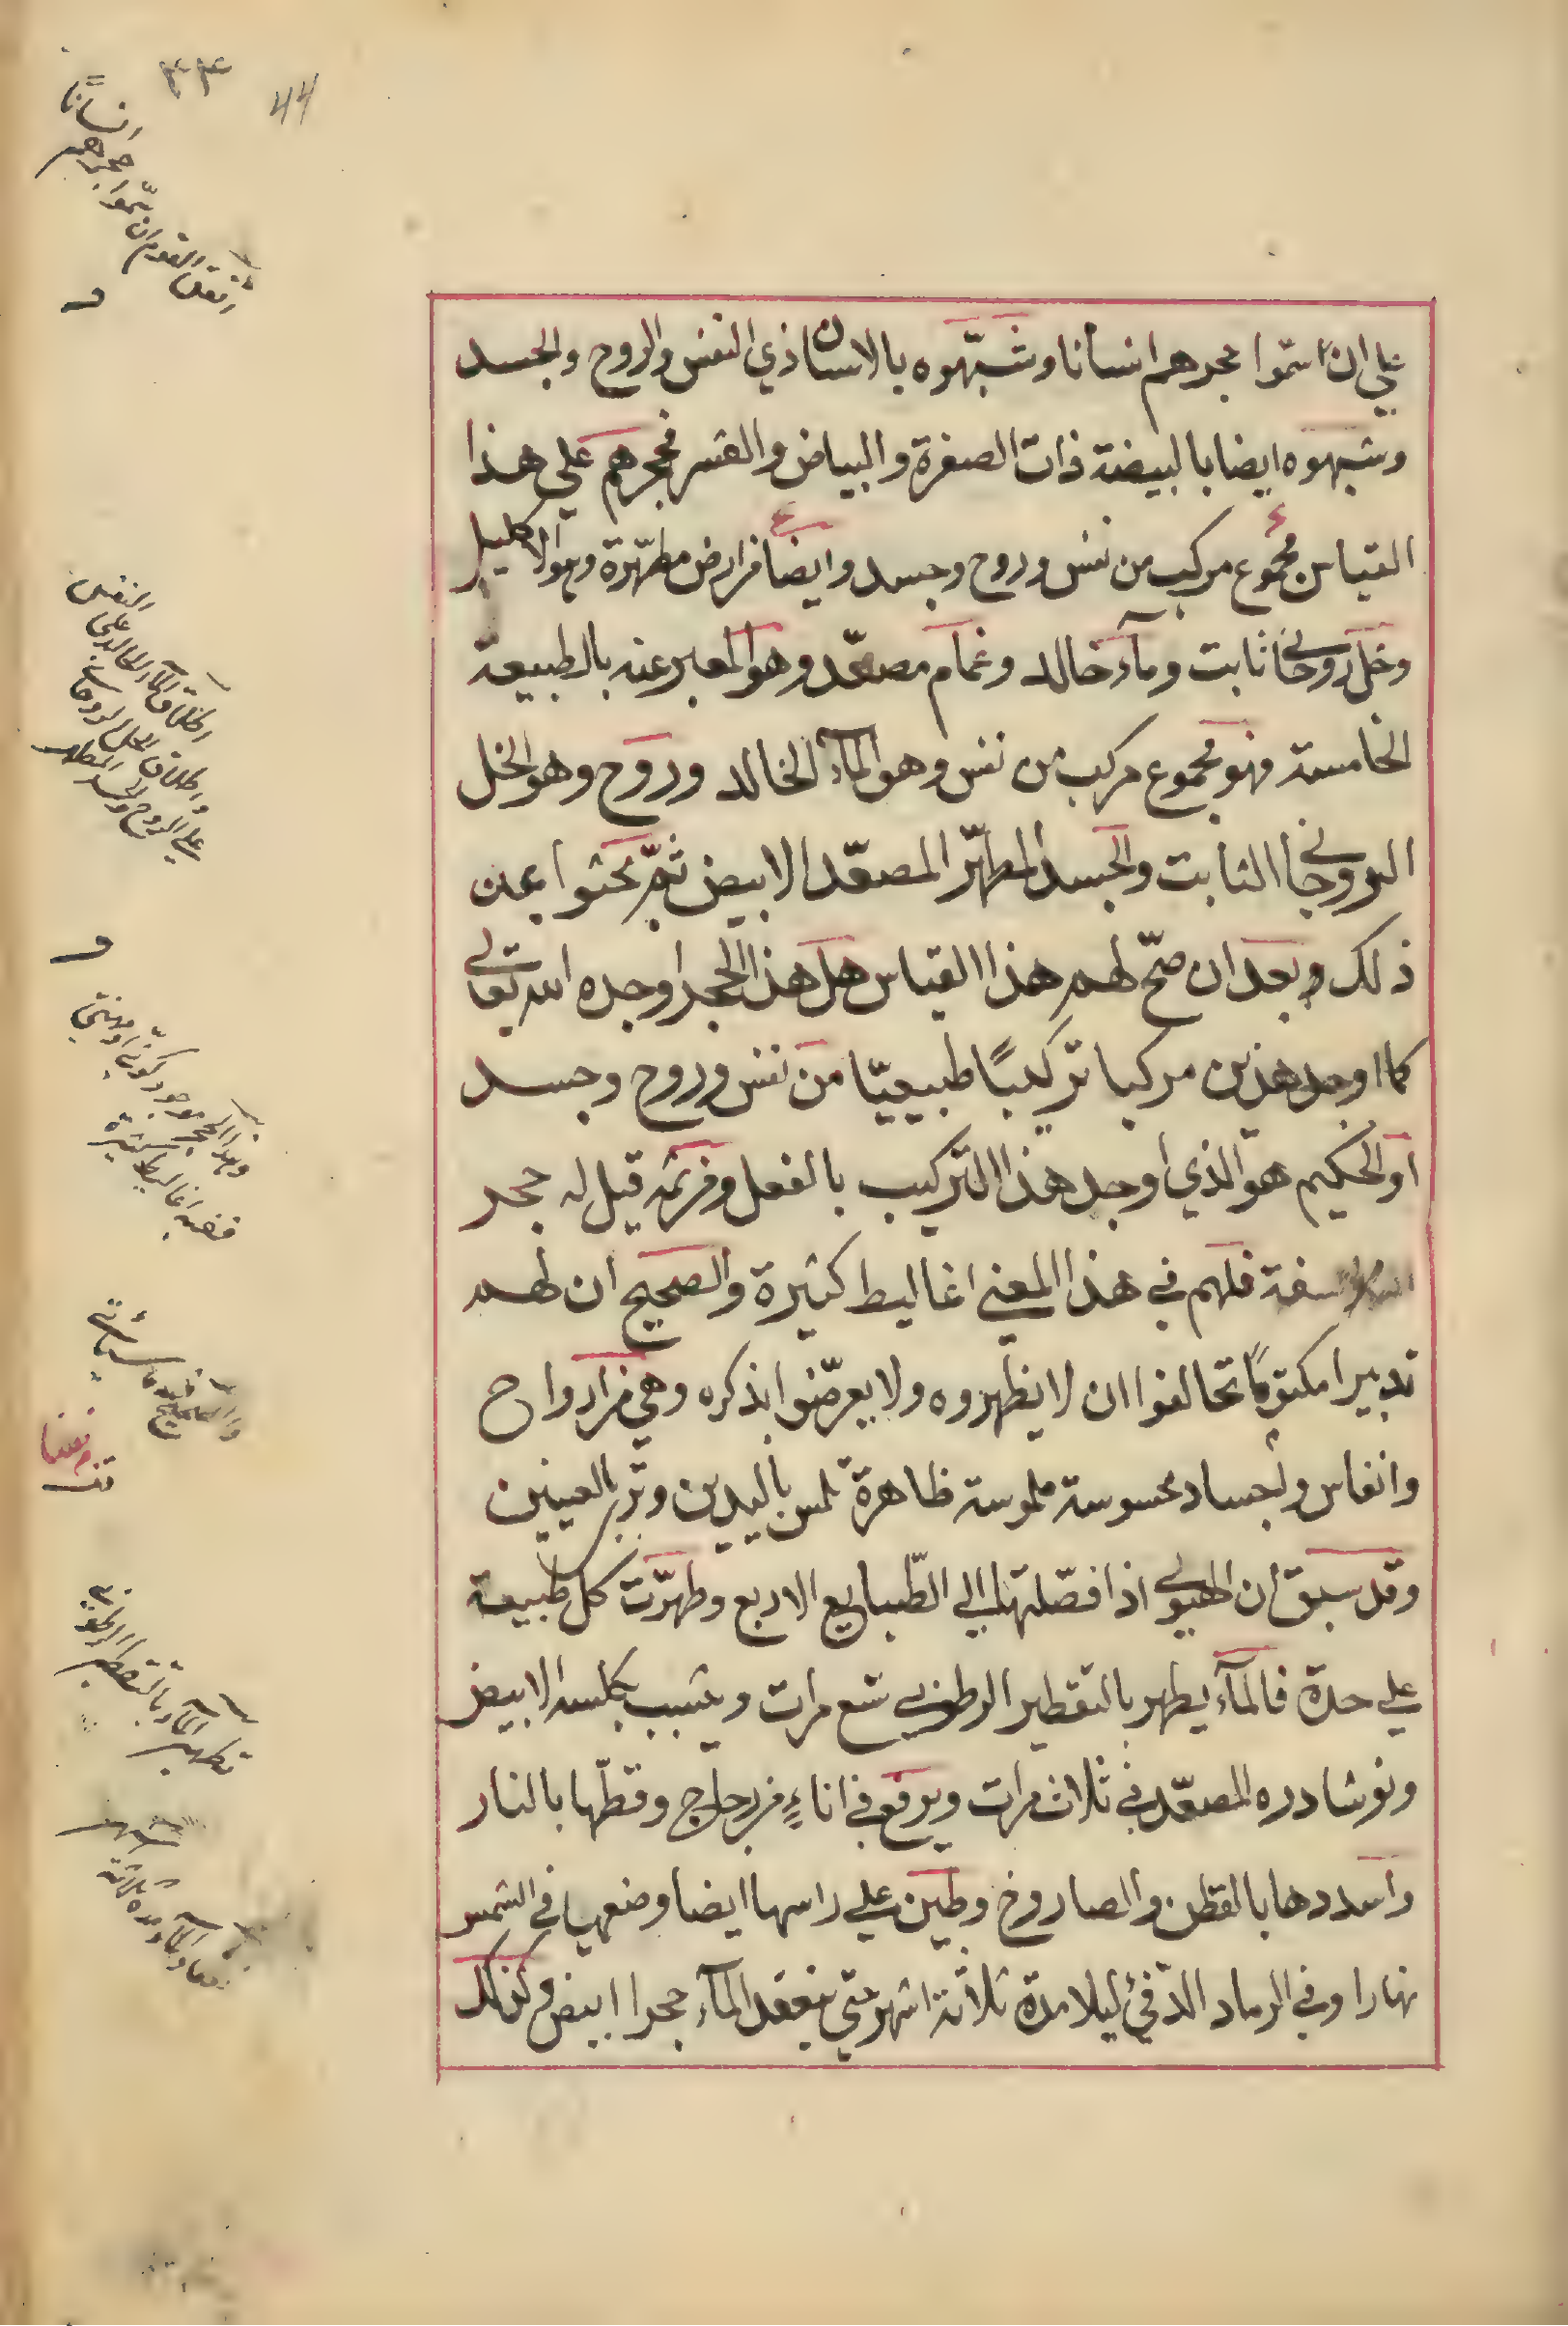 ٣٣
44
علي ان سمّوا حجرهم انسانا وشبّهوه بالانسان ذي النفس والروح والجسد
وشبهوه ايضا بالبيضة ذات الصفرة والبياض والقشر فحجرهم علي هذا
القياس مجموع مركب من نفس وروح وجسد وايضا من ارض مطهّرة وهو الاكليل
وخل روحاني ثابت ومآء خالد وغمام مصعّد وهو المعبر عنه بالطبيعة
الخامسة فهو مجموع مركب من نفس وهو المآء الخالد وروح وهو الخل
الروحاني الثابت والجسد المطهّر المصعّد الابيض ثمّ بحثوا عن
ذلك وبعد ان صحّ لهم هذا القياس هل هذا الحجر اوجده الله تعالي
كما اوجد هذين مركبا تركيبًا طبيعيّا من نفس وروح وجسد
او الحكيم هو الذي اوجد هذا التركيب بالفعل ومن ثمّه قيل له حجر
الفلاسفة فلهم في هذا المعني اغاليط كثيرة والصحيح ان لهم
تدبيرا مكتومًا تحالفوا ان لا يظهروه ولا يعرّضوا بذكره وهي من ارواح
وانفاس واجساد محسوسة ملموسة ظاهرة تلمس باليدين وتري بالعينين
وقد سبق ان الهيولي اذا فصّلتها الي الطّبايع الاربع وطهّرت كل طبيعة
علي حدة فالمآء يطهر بالتقطير الرطوبي سبع مرات ويشبب بكلسه الابيض
ونوشادره المصعّد في ثلاث مرات ويرفع في اناءٍ من زجاج وقطّها بالنار
واسددها بالقطن والصاروخ وطين علي راسها ايضا وضعها في الشمس
نهارا وفي الرماد الدّفئ ليلا مدة ثلاثة اشهر حتي ينعقد المآء حجرا ابيض وكذلك
اتفق القوم ان سمّوا حجرهم انسانًا
اطلاق المآء الخالد علي النفس
واطلاق الخل الروحاني
علي الروح والجسد المطهر
وهذا الحجر موجود كونيّ او صنعتي
ففيه اغاليط كثيرة
والصحيح
تطهير المآء بالتقطير الرطوبي